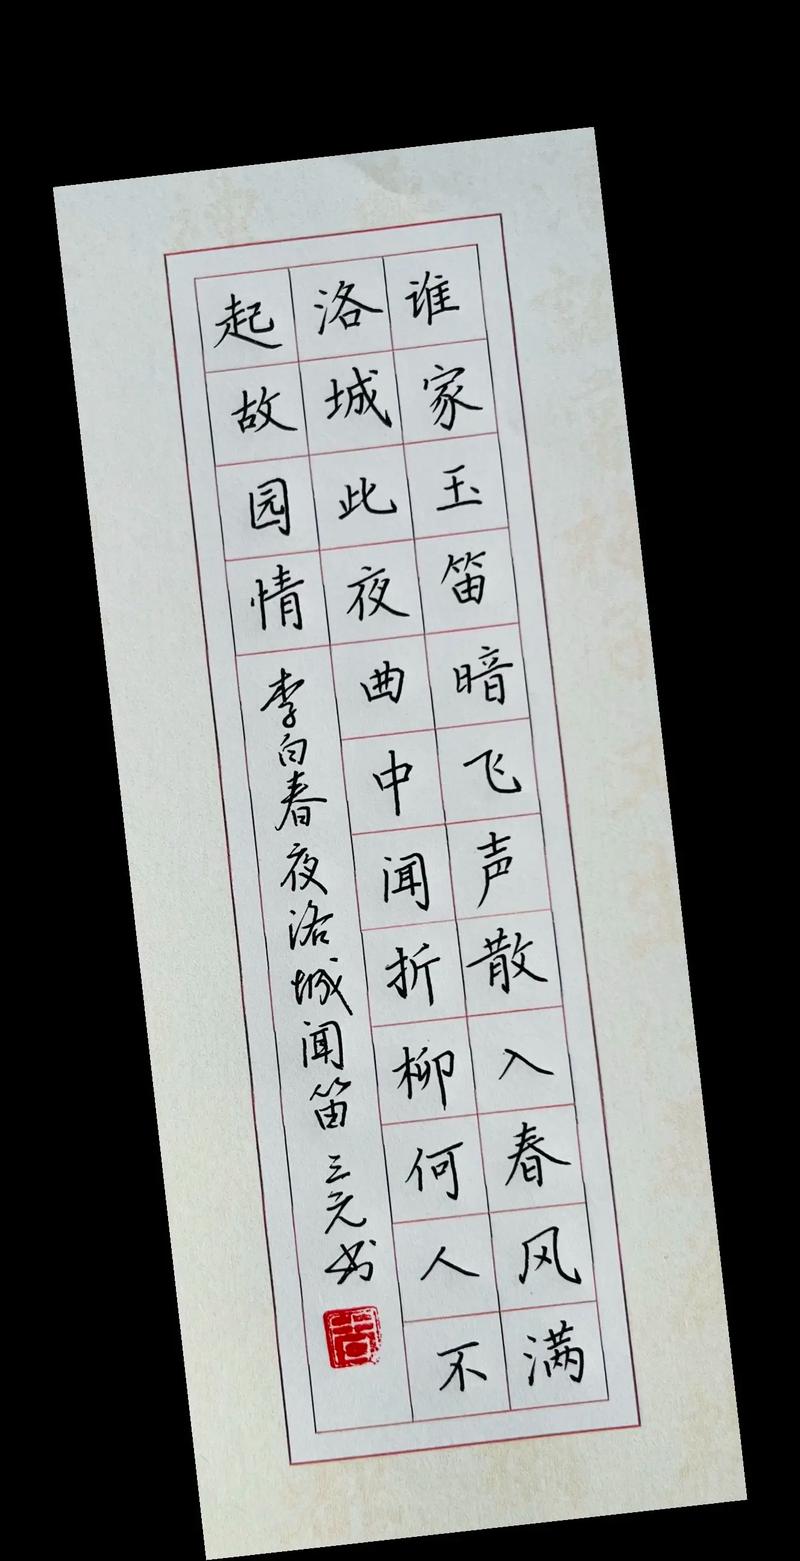 谁家玉笛暗飞声散入春风满
洛城此夜曲中闻折柳何人不
起故园情
李白春夜洛城闻笛 三元书